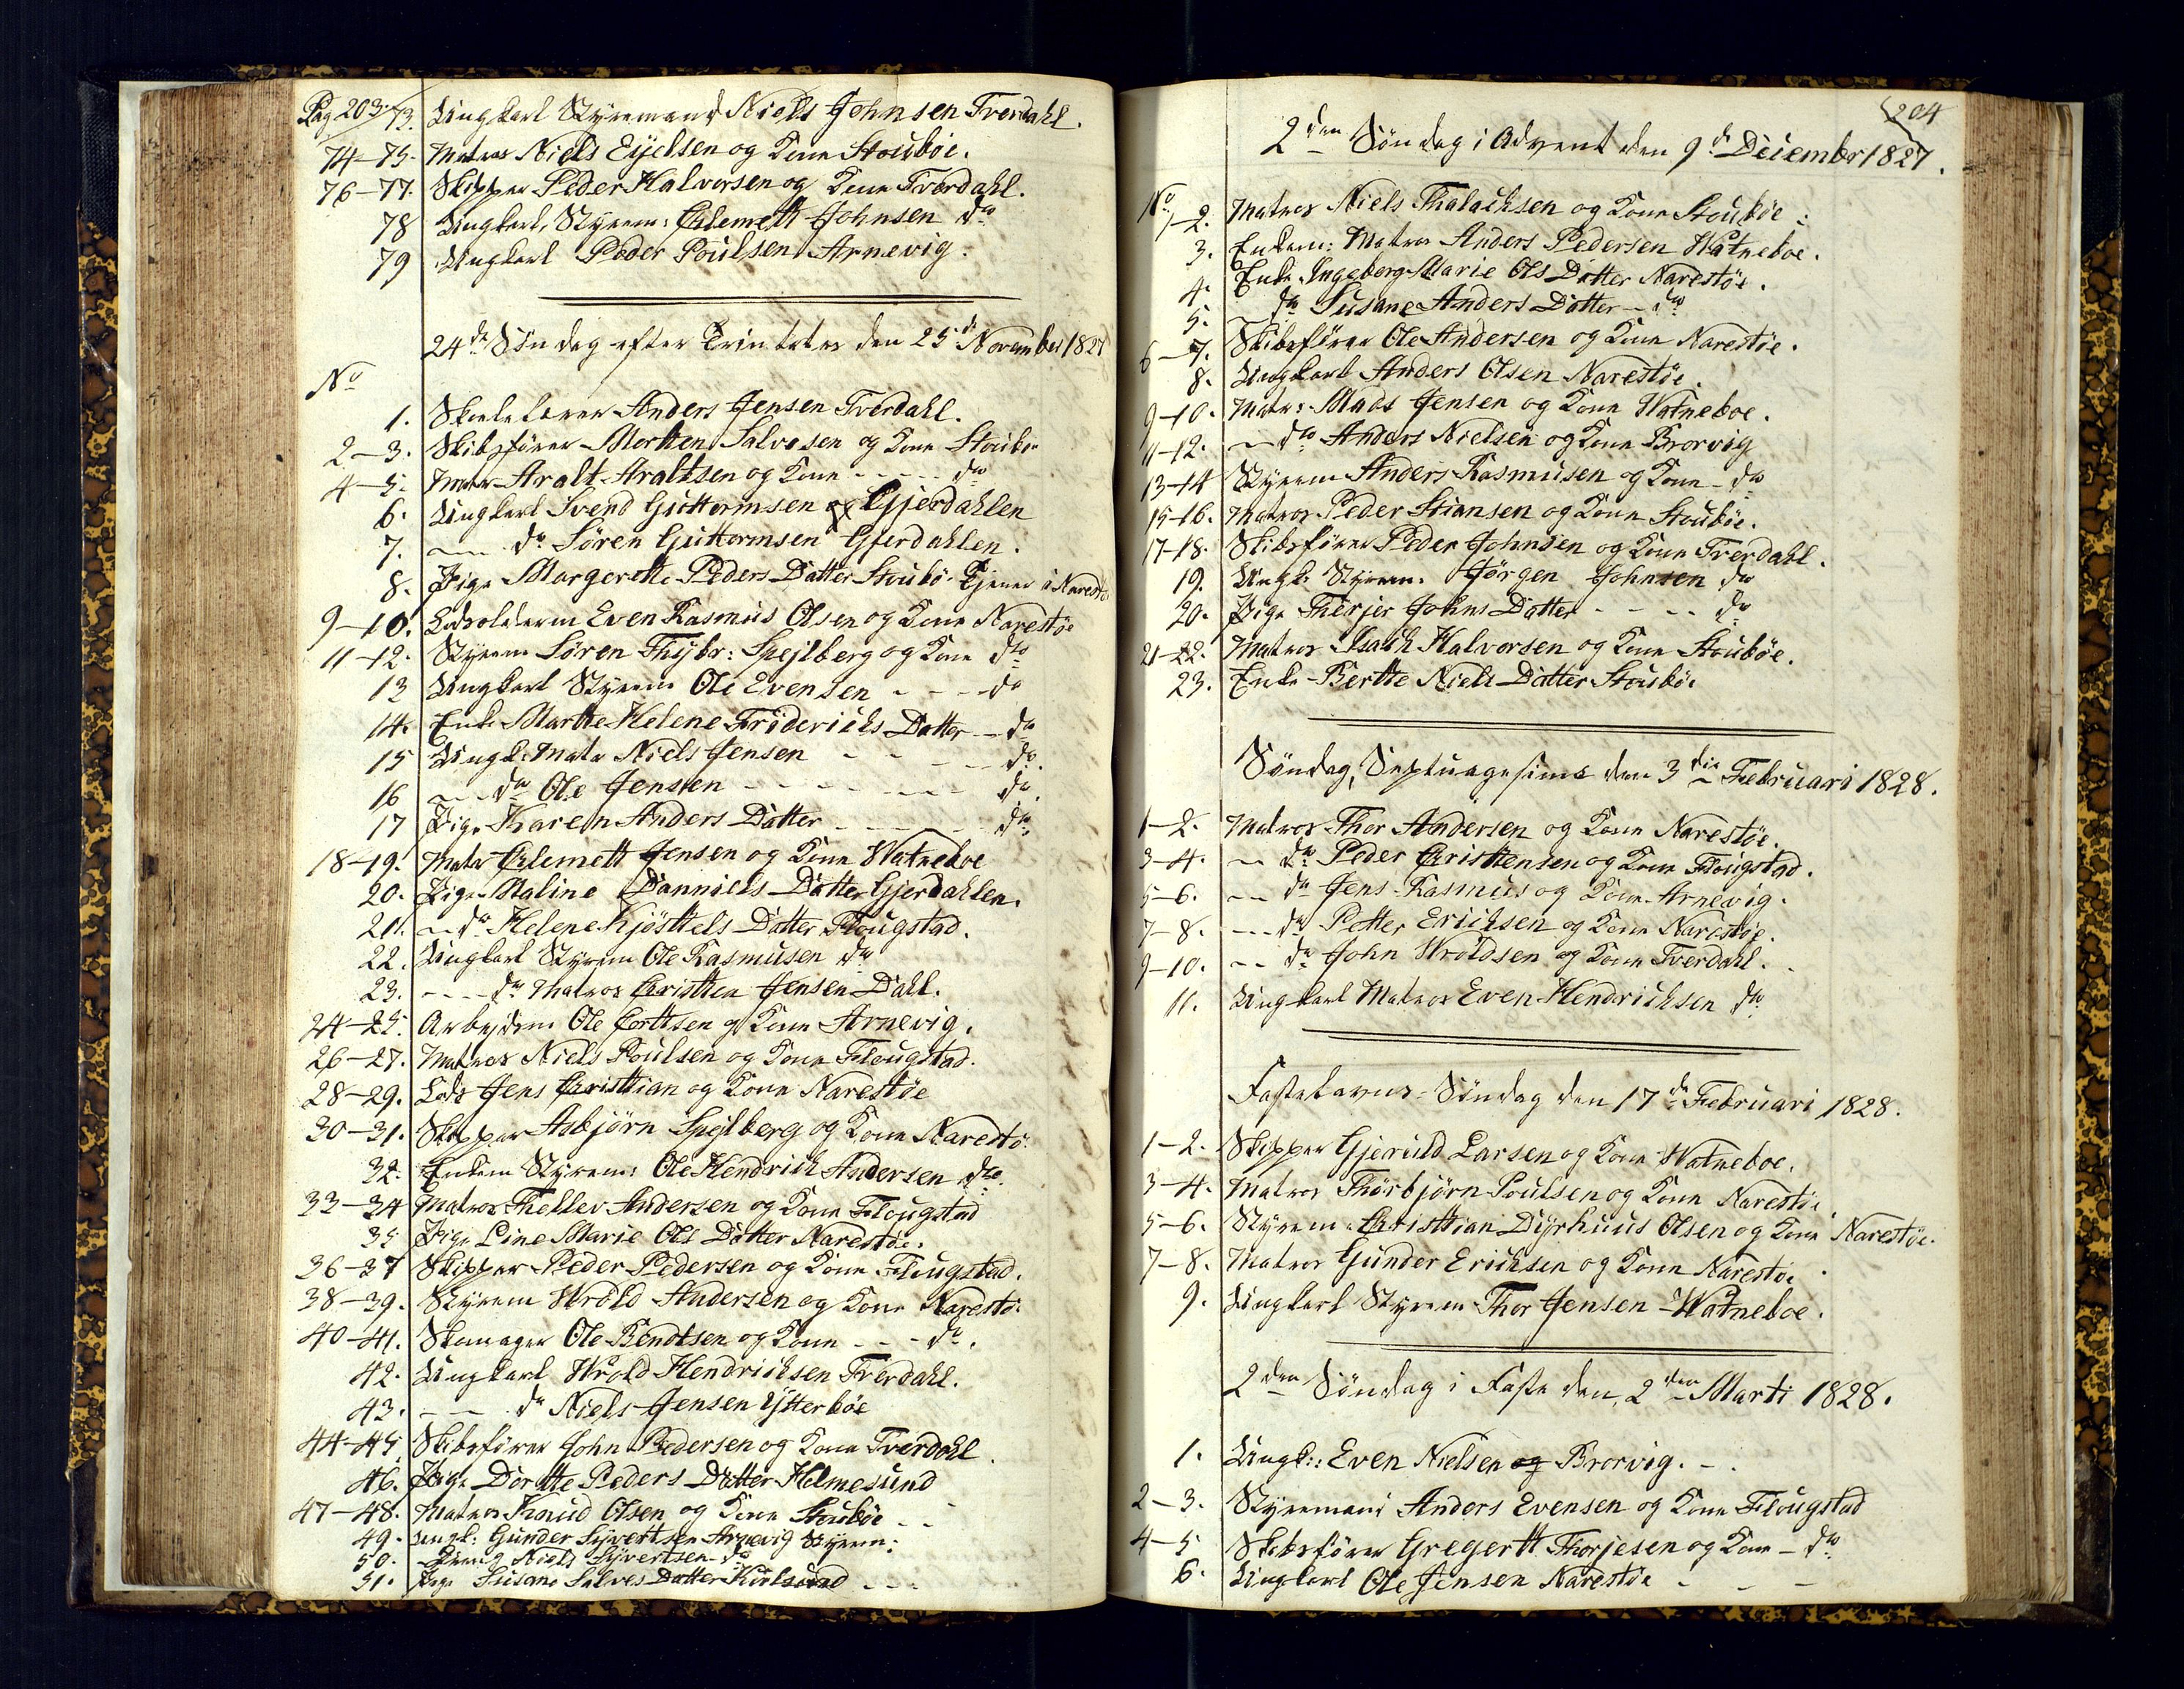 Pag 203. 73. Ungkarl Styrmand Niels Johnsen Tverdahl.
74-75. Matros Niels Eyelsen og Kone Stoubøe.
76-77. Skipper Peder Halvorsen og Kone Tverdahl.
78 Ungkarl, Styrm: Clemett Johnsen do
79 Ungkarl Peder Poulsen Arnevig.
24de Søndag efter Trinitatis den 25de November 1827
No
1. Skolelærer Anders Jensen Tverdahl.
2-3. Skibsfører Morten Salvesen og Kone Stoubø
4-5. Matr Aralt Araltsen og Kone - - - - do
6. Ungkarl Svend Guttormsen og Gjerdahlen
7. do Søren Guttormsen Gjerdahlen.
8. Pige Margerethe Peders Datter Stoubø. tjener i Narestø
9-10. Lodsolderm Even Rasmus Olsen og Kone Narestøe
11-12. Styrm Søren Thybr: Spejlberg og Kone do
13 Ungkarl Styrm Ole Evensen - - - do
14. Enke Marthe Helene Friderichs Datter - do
15 Ungk: Matr Niels Jensen - - - do.
16 do Ole Jensen - - - - do.
17 Pige Karen Anders Datter - - - do
18-19. Matr Clemett Jensen og Kone Watneboe
20. Pige Maline Danniels Datter Gjerdahlen.
21. do Helene Kjøsttels Datter Flougstad.
22. Ungkarl Styrm Ole Rasmusen do
23. - - - do Matros Christten Jensen Dahl.
24-25. Arbejdsm Ole Corttsen og Kone Arnevig.
26-27. Matros Niels Poulsen og Kone Flougstad.
28-29. Lods Jens Christtian og Kone Narestøe
30-31. Skipper Asbjørn Spejlberg og Kone Narestø.
32. Enkem Styrm: Ole Hendrich Andersen do.
33-34 Matros Thellev Andersen og Kone Flougstad
35 Pige Line Marie Ols Datter Narestøe.
36-37 Skipper Peder Pedersen og Kone Flougstad.
38-39. Styrm Wrold Andersen og Kone Narestø.
40-41. Skomager Ole Bendtsen og Kone - - do.
42. Ungkarl Wrold Hendrichsen Tverdahl.
43. - - do Niels Jensen Ytterbøe
44-45. Skibsfører John Pedersen og Kone Tverdahl.
46. Pige Dortte Peders Datter Holmesund
47-48. Matros Knud Olsen og Kone Stoubøe - -
49. Ungk: Gunder Syvertsen Arnevig Styrm:
50. Niels Syvertsen - do
51. Pige Susane Salves Datter Kirlsund - - -
204
2den Søndag i Advent den 9de Decembr 1827.
No
1-2. Matros Niels Thalachsen og Kone Stoubøe.
3. Enkem: Matros Anders Pedersen Watneboe.
4. Enke Ingeborg Marie Ols Datter Narestøe.
5. do Susane Anders Datter - do
6-7. Skibsfører Ole Andersen og Kone Narestøe.
8. Ungkarl Anders Olsen Narestøe.
9-10. Matr: Mads Jensen og Kone Watneboe.
11-12. - do Anders Nielsen og Kone Brorvig
13-14 Styrm Anders Rasmusen og Kone - do
15-16. Matros Peder Stiansen og Kone Stoubøe.
17-18. Skibsfører Peder Johnsen og Kone Tverdahl.
19. Ungk: Styrm. Jørgen Johnsen do
20. Pige Therjer Johns Datter - - - do
21-22. Matros Isach Halvorsen og Kone Stoubøe.
23. Enke Bertte Niels Datter Stoubøe
Søndag, Septuagesima den 3die Februari 1828.
1-2. Matros Thor Andersen og Kone Narestøe.
3-4. - do Peder Christtensen og Kone Flougstad.
5-6. - do Jens Rasmus og Kone Arnevig.
7-8. - do Petter Erichsen og Kone Narestøe.
9-10. - do John Wroldsen og Kone Tverdahl.
11. Ungkarl Matros Even Hendrichsen do
Fastelavns Søndag den 17de Februari 1828.
1-2. Skipper Gjeruld Larsen og Kone Watneboe.
3-4. Matros Thorbjørn Poulsen og Kone Narestøe
5-6. Styrm: Christtian Dyrhuus Olsen og Kone Narestøe.
7-8. Matros Gunder Erichsen og Kone Narestøe.
9. Ungkarl Styrm Thor Jensen Watneboe.
2den Søndag i Faste den 2den Marti 1828.
1. Ungk: Even Nielsen og Brorvig. - -
2-3. Styrmand Anders Evensen og Kone Flougstad
4-5 Skibsfører Gregertt Thorjesen og Kone - do
6. Ungkarl Ole Jensen Narestøe - - -